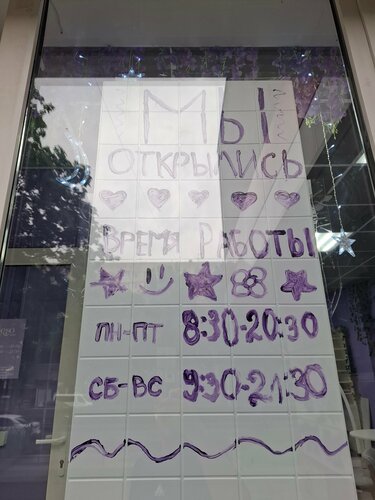 МЫ
ОТКРЫЛИСЬ
ВРЕМЯ РАБОТЫ
ПН-ПТ 8:30-20:30
СБ-ВС 9:30-21:30